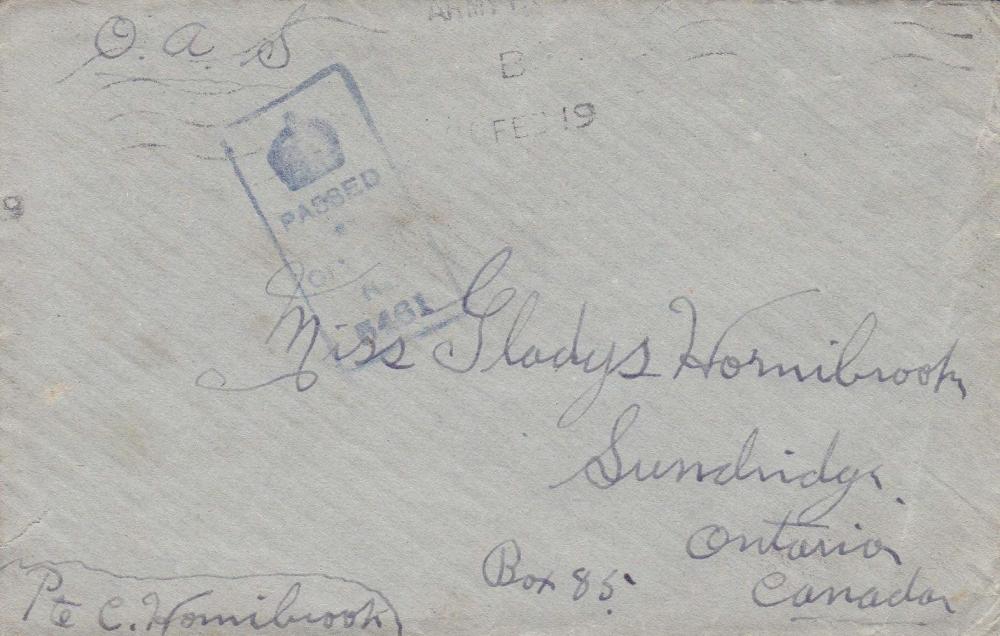 O. A. S
ARMY
B
FE 19
9
PASSED
No
5461
Miss Gladys Hornibrook
Sundridge.
Ontario
Box 85.
Canada
Pte C. Hornibrook